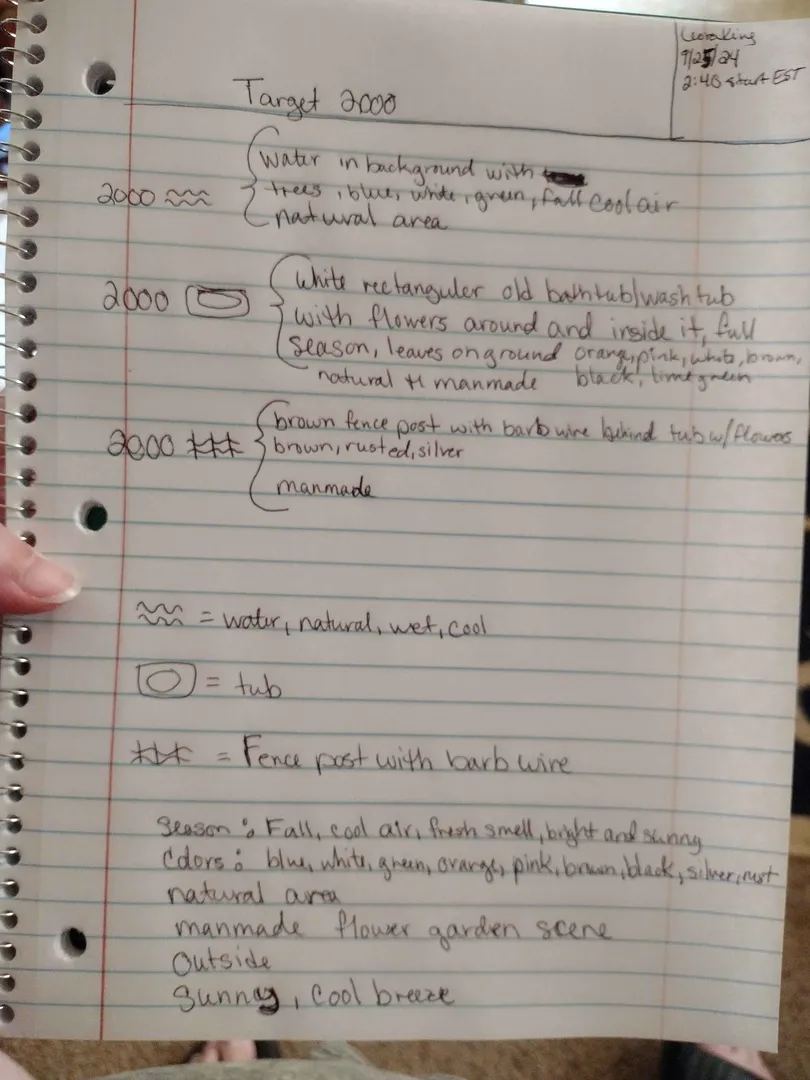 9/25/24
2:40 start EST
Target 2000
Water in background with
2000 trees, blue, white, green, fall cool air
natural area
White rectanguler old bathtub/wash tub
2000 with flowers around and inside it, fall
season, leaves on ground orange, pink, white, brown,
natural + manmade black, lime green
brown fence post with barb wire behind tub w/flowers
2000 brown, rusted, silver
manmade
= water, natural, wet, cool
= tub
= Fence post with barb wire
Season: Fall, cool air, fresh smell, bright and sunny
Colors: blue, white, green, orange, pink, brown, black, silver, rust
natural area
manmade flower garden scene
Outside
Sunny, cool breeze